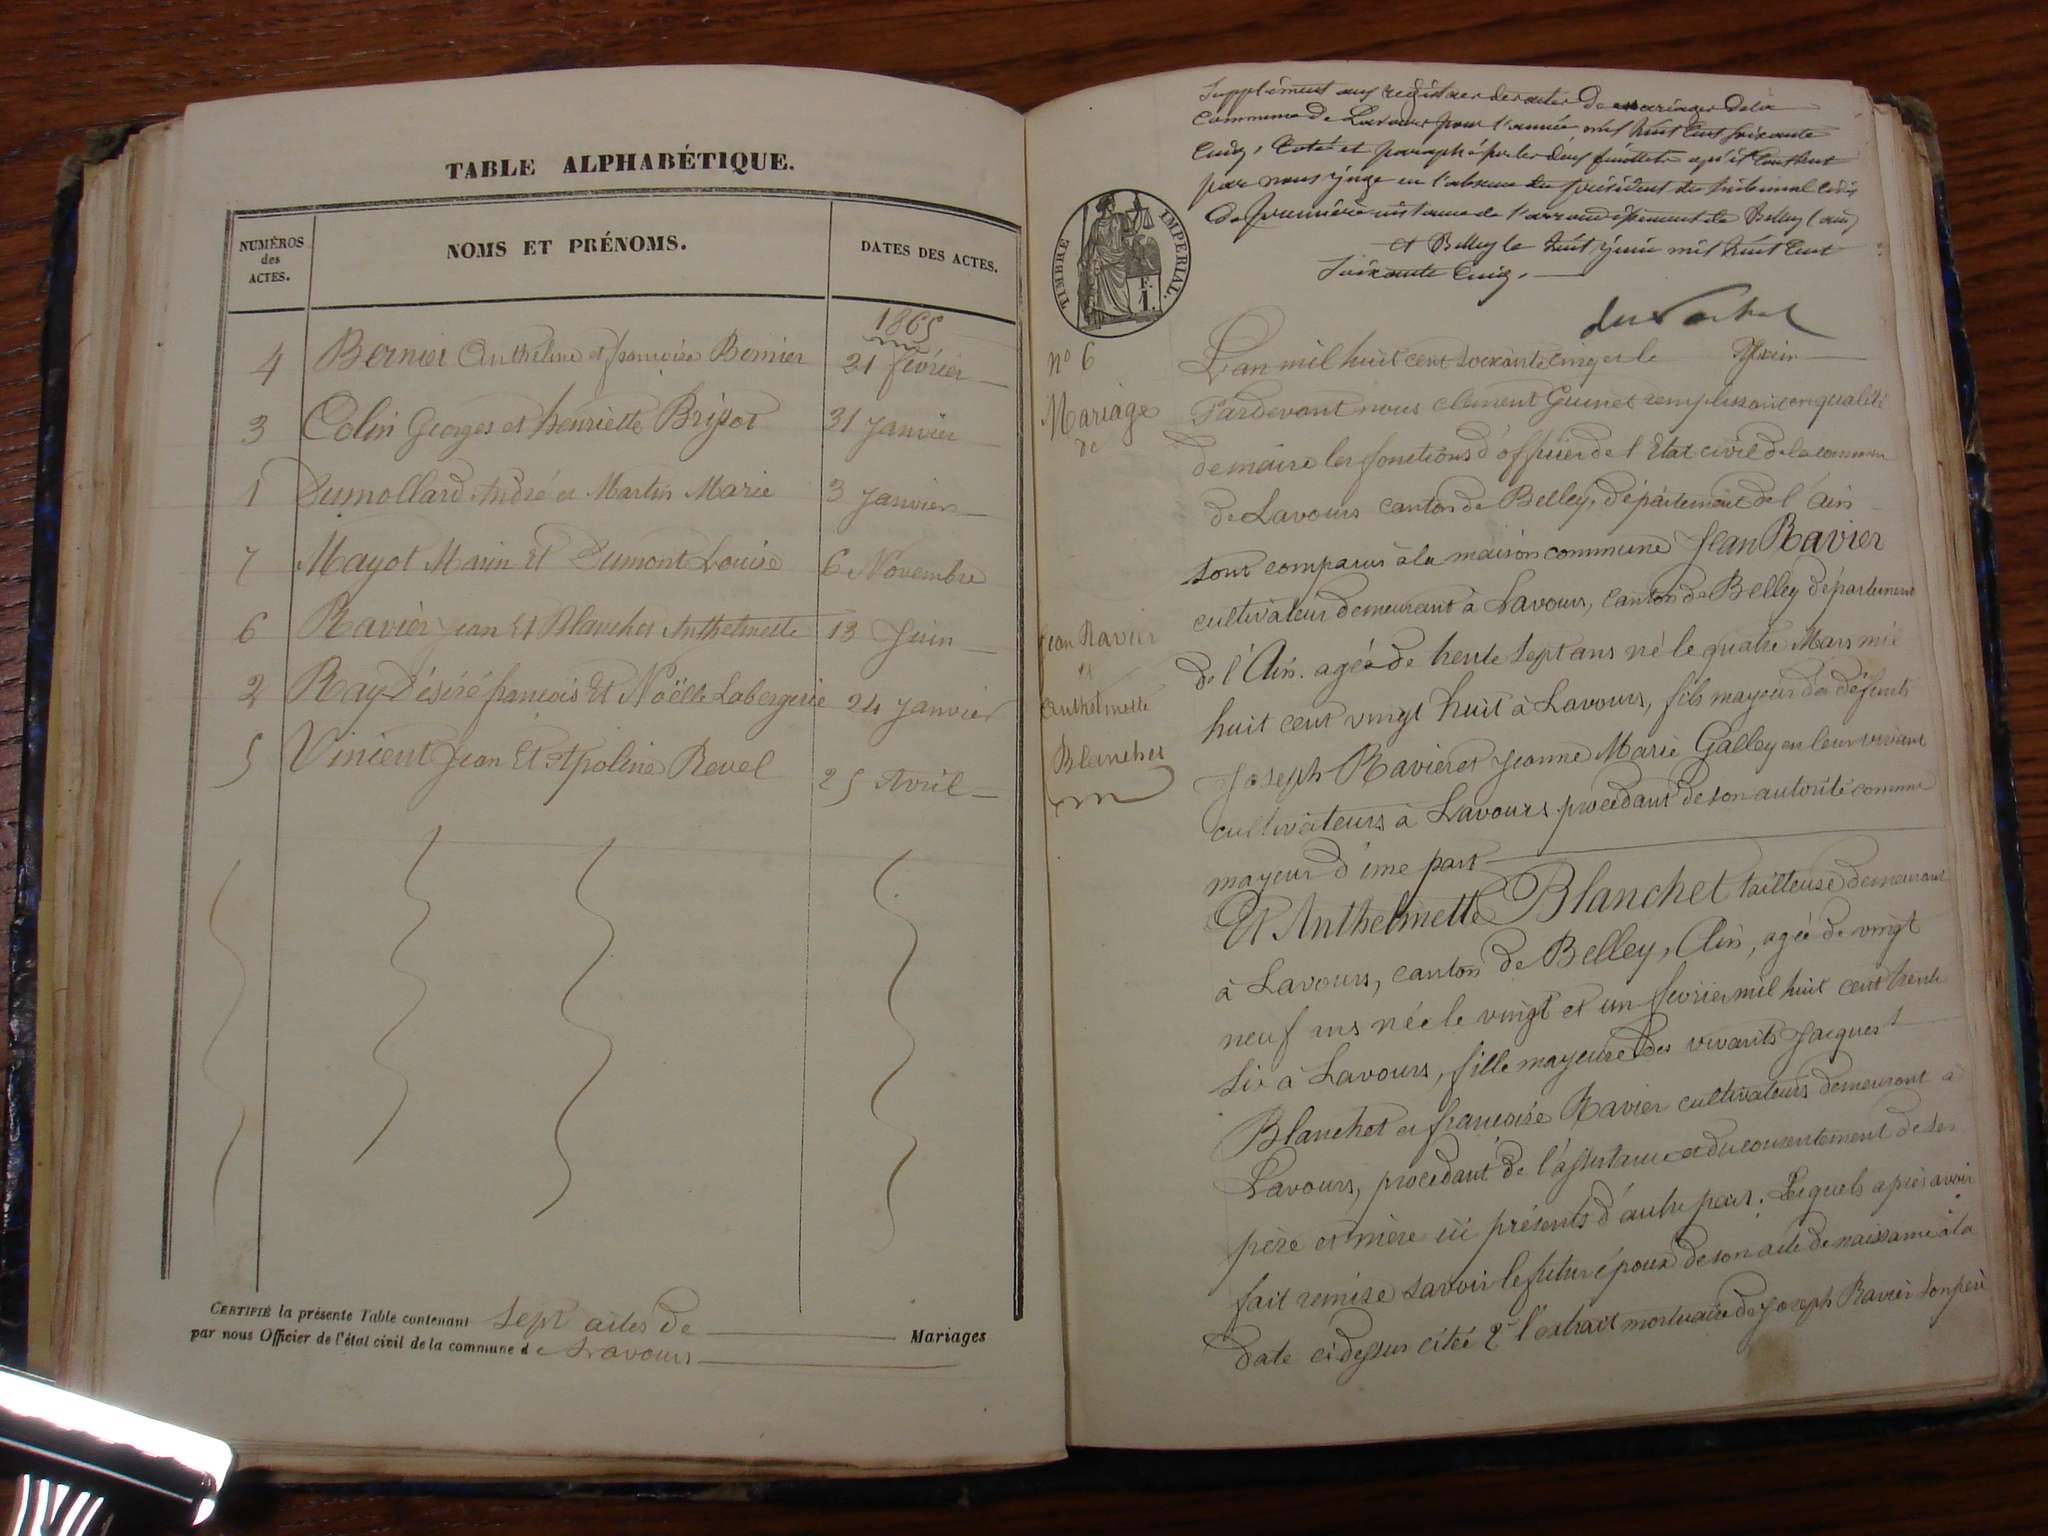 TABLE ALPHABÉTIQUE.
NUMÉROS des ACTES.
NOMS ET PRÉNOMS.
DATES DES ACTES.
1865
4 Bernier Anthelme et françoise Bernier 21 février
3 Colin Georges et henriette Brisot 31 Janvier
1 Dumollard André et Martin Marie 3 Janvier
7 Mayot Marin Et Dumont Louise 6 Novembre
6 Ravier Jean Et Blanchet Anthelmette 13 Juin
2 Ray Désiré françois Et Noëlle Labergerie 24 Janvier
5 Vincent Jean Et Apoline Revel 25 Avril
CERTIFIÉ la présente Table contenant Sept actes de Mariages
par nous Officier de l'état civil de la commune de Lavours
Supplément aux registres des actes de mariages de la
commune de Lavours pour l'année mil huit cent soixante
cinq, coté et paraphé par les deux feuillets qu'il contient
par nous juge en l'absence du président du tribunal civil
de première instance de l'arrondissement de Belley (ain)
et Belley le huit juin mil huit cent
soixante cinq.
TIMBRE IMPÉRIAL.
F.
1.
n° 6
Mariage
de
Jean Ravier
et
Anthelmette
Blanchet
L'an mil huit cent soixante cinq et le Juin
Pardevant nous clément Guinet remplissant en qualité
de maire les fonctions d'officier de l'Etat civil de la commune
de Lavours canton de Belley, département de l'Ain
sont comparus à la maison commune Jean Ravier
cultivateur demeurant à Lavours, canton de Belley département
de l'Ain. agée de trente sept ans né le quatre Mars mil
huit cent vingt huit à Lavours, fils mayeur des défunts
Joseph Ravier et Jeanne Marie Galley en leur vivant
cultivateurs à Lavours procédant de son autorité comme
mayeur d'une part
Et Anthelmette Blanchet tailleuse demeurant
à Lavours, canton de Belley, Ain, agée de vingt
neuf ans née le vingt et un fevrier mil huit cent trente
six à Lavours, fille mayeure des vivants Jacques
Blanchet et françoise Ravier cultivateurs demeurant à
Lavours, procédant de l'assistance et du consentement de ses
père et mère ici présents d'autre part. Lesquels après avoir
fait remise savoir le futur époux de son acte de naissance à la
date ci dessus citée 2° l'extrait mortuaire de Joseph Ravier son père